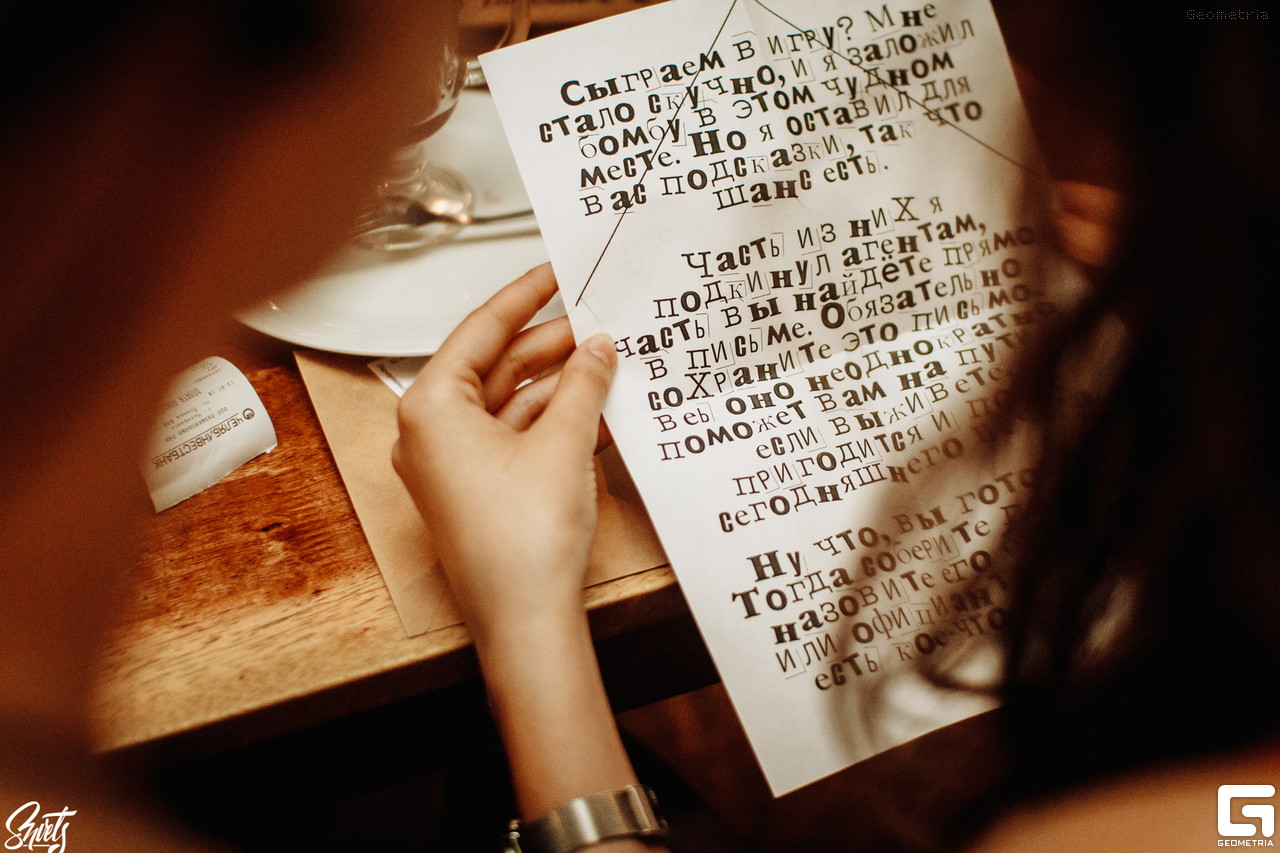 Geometria
Сыграем в игру? Мне
стало скучно, и я заложил
бомбу в этом чудном
месте. Но я оставил для
вас подсказки, так что
шанс есть.
Часть из них я
подкинул агентам,
часть вы найдёте прямо
в письме. Обязательно
сохраните это письмо.
Веь оно неоднократно
поможет вам на пути
если выживете
пригодится и
сегодняшнего
Ну что, вы гото
Тогда соберите
назовите его
или официант
есть кое-что
ЧЕЛЯБИНВЕСТБАНК
Shvets
GEOMETRIA